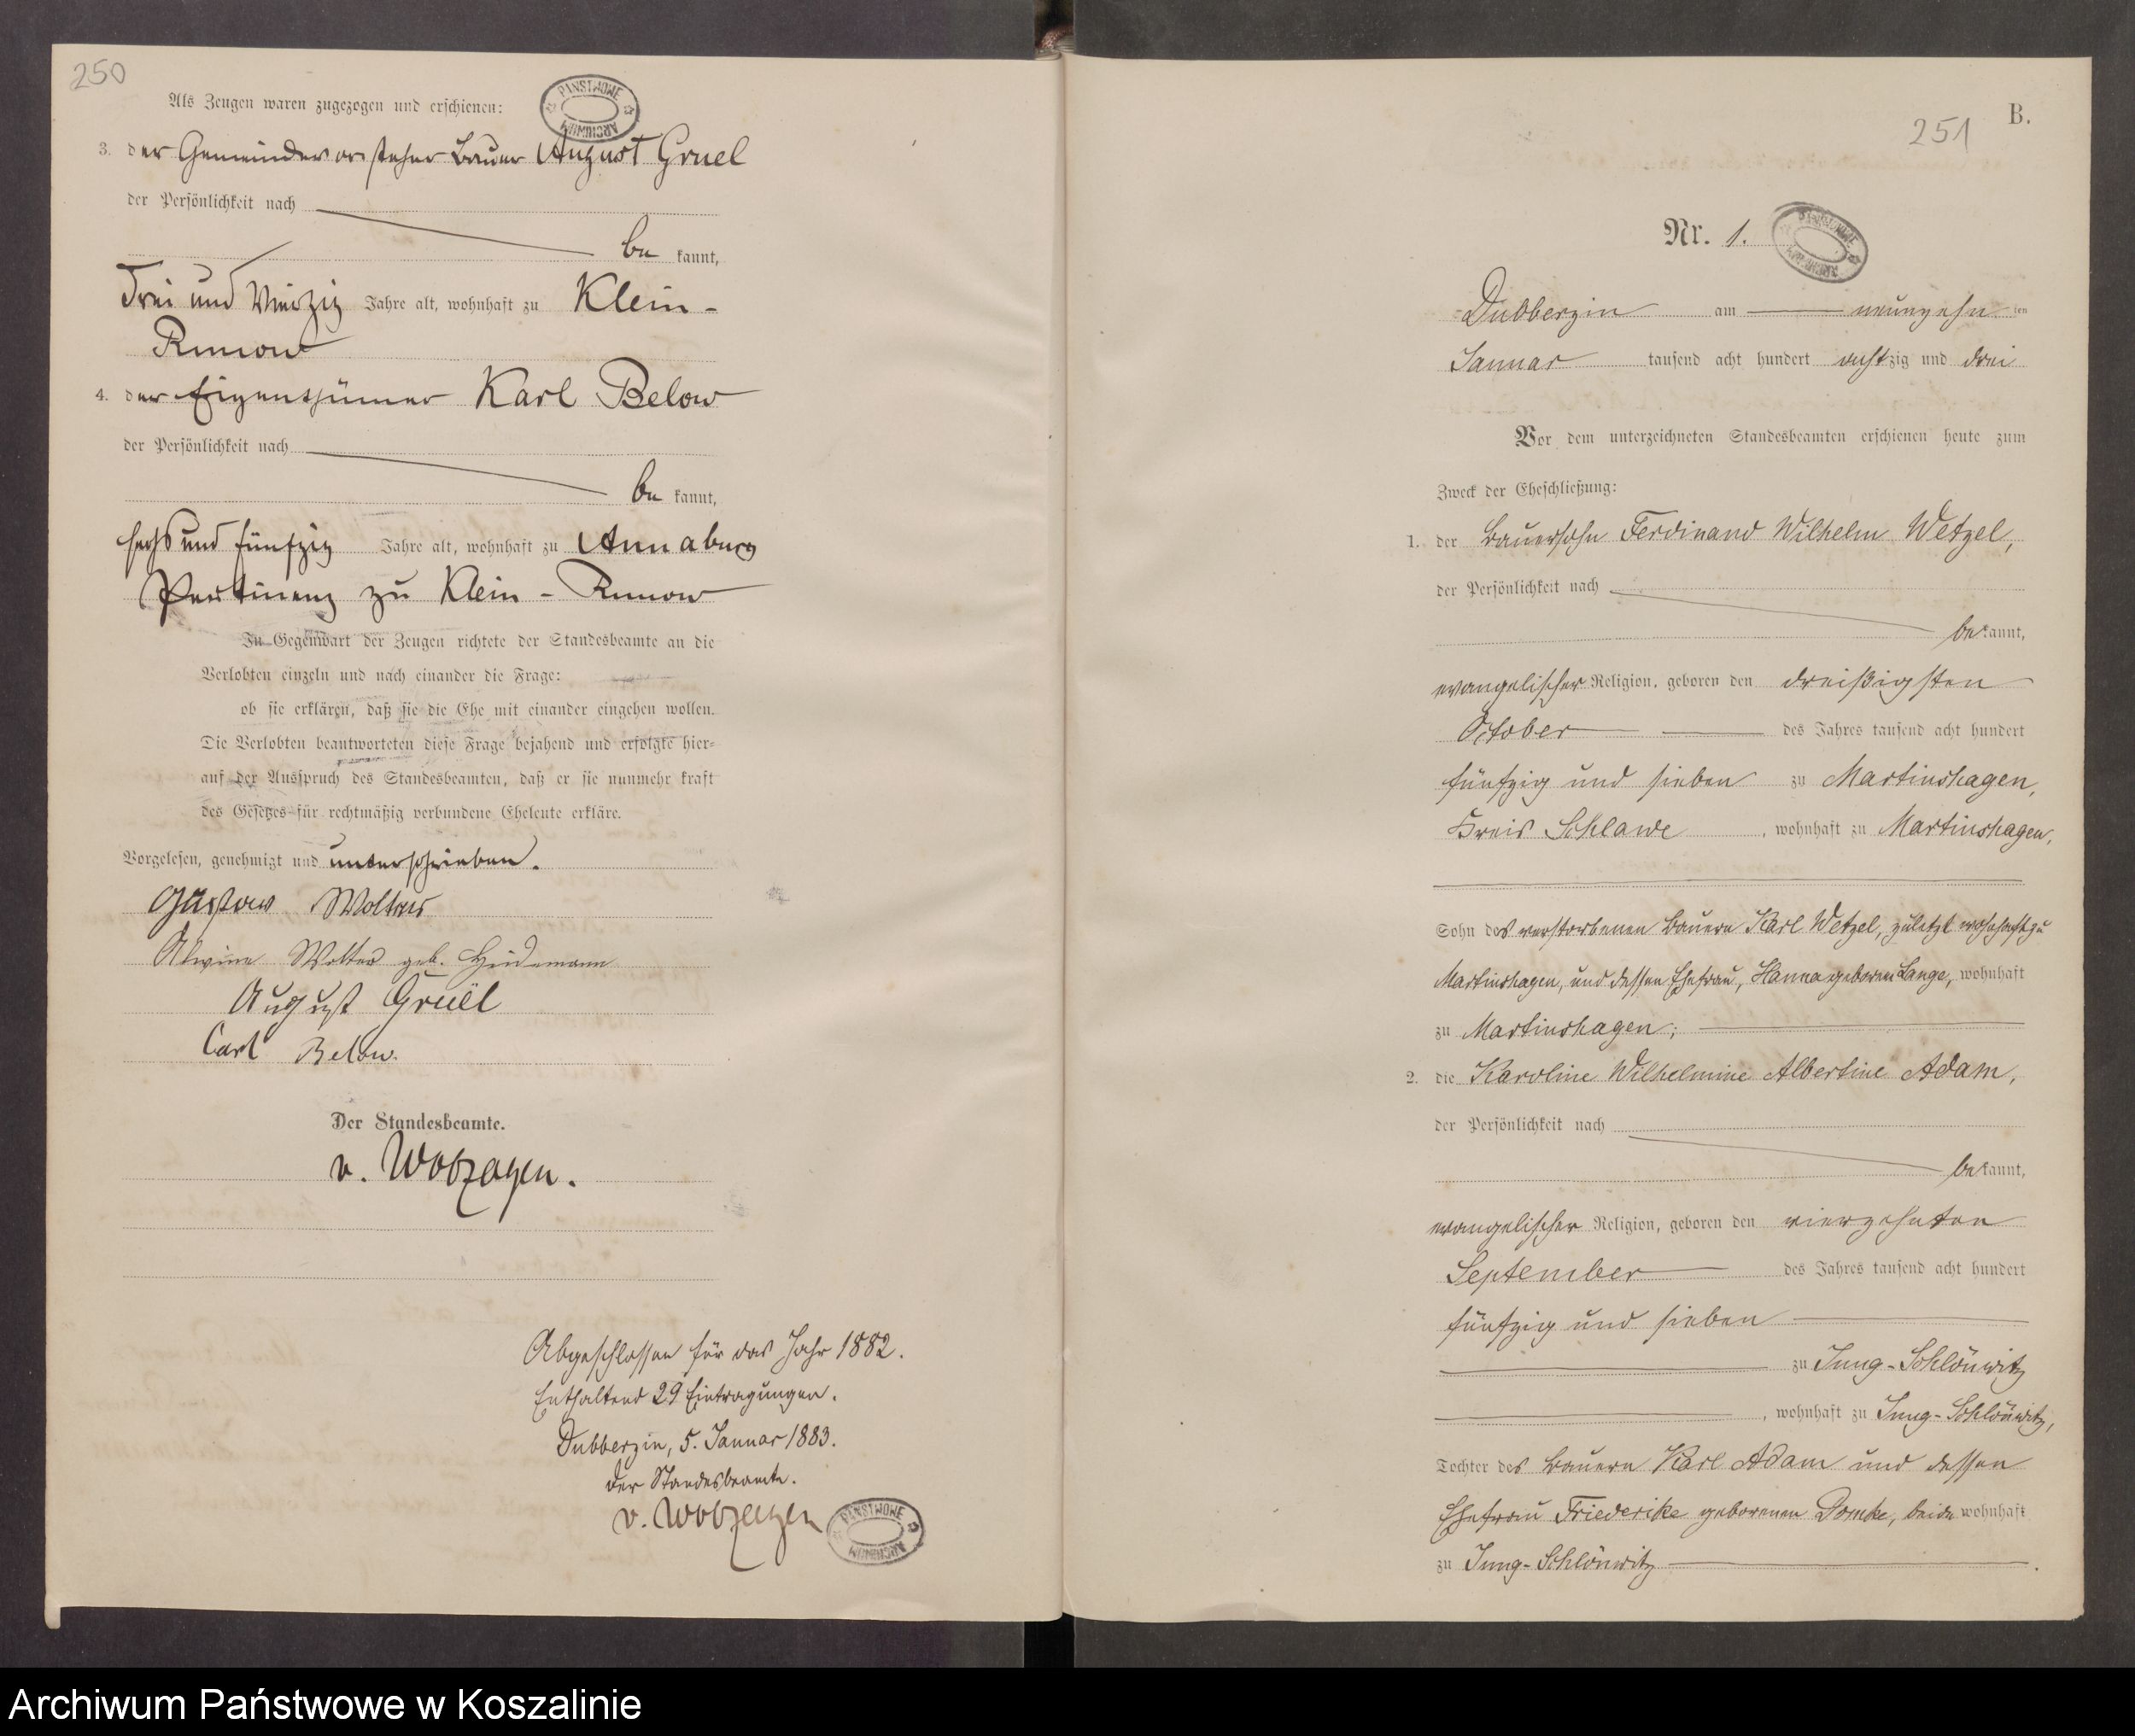 250
Als Zeugen waren zugezogen und erschienen:
PANSTWOWE ARCHIWUM
3. der Gemeindevorsteher Bauer August Gruel
der Persönlichkeit nach
be kannt,
drei und vierzig Jahre alt, wohnhaft zu Klein-
Runow
4. der Eigenthümer Karl Below
der Persönlichkeit nach
be kannt,
sechs und fünfzig Jahre alt, wohnhaft zu Annaburg
Pertinenz zu Klein-Runow
In Gegenwart der Zeugen richtete der Standesbeamte an die
Verlobten einzeln und nach einander die Frage:
ob sie erklären, daß sie die Ehe mit einander eingehen wollen.
Die Verlobten beantworteten diese Frage bejahend und erfolgte hier-
auf der Ausspruch des Standesbeamten, daß er sie nunmehr kraft
des Gesetzes für rechtmäßig verbundene Eheleute erkläre.
Vorgelesen, genehmigt und unterschrieben.
Gustav Wolter
Alwine Wolter geb. Heidemann
August Gruel
Carl Below.
Der Standesbeamte.
v. Woedtke
Abgeschlossen für das Jahr 1882.
Enthaltend 29 Eintragungen.
Dubberzin, 5. Januar 1883.
Der Standesbeamte.
PANSTWOWE ARCHIWUM
B.
251
Nr. 1.
PANSTWOWE ARCHIWUM
Dubberzin am neunzehn ten
Januar tausend acht hundert achtzig und drei
Vor dem unterzeichneten Standesbeamten erschienen heute zum
Zweck der Eheschließung:
1. der Bauersohn Ferdinand Wilhelm Wetzel,
der Persönlichkeit nach
bekannt,
evangelischer Religion, geboren den dreißigsten
October des Jahres tausend acht hundert
fünfzig und sieben zu Martinshagen,
Kreis Schlawe, wohnhaft zu Martinshagen,
Sohn des verstorbenen Bauern Karl Wetzel, zuletzt wohnhaft zu
Martinshagen, und dessen Ehefrau, Hanna geboren Lange, wohnhaft
zu Martinshagen;
2. die Karoline Wilhelmine Albertine Adam,
der Persönlichkeit nach
bekannt,
evangelischer Religion, geboren den vierzehnten
September des Jahres tausend acht hundert
fünfzig und sieben
zu Jung-Schlönwitz
, wohnhaft zu Jung-Schlönwitz,
Tochter des Bauern Karl Adam und dessen
Ehefrau Friederike geborenen Domke, beide wohnhaft
zu Jung-Schlönwitz.
Archiwum Państwowe w Koszalinie